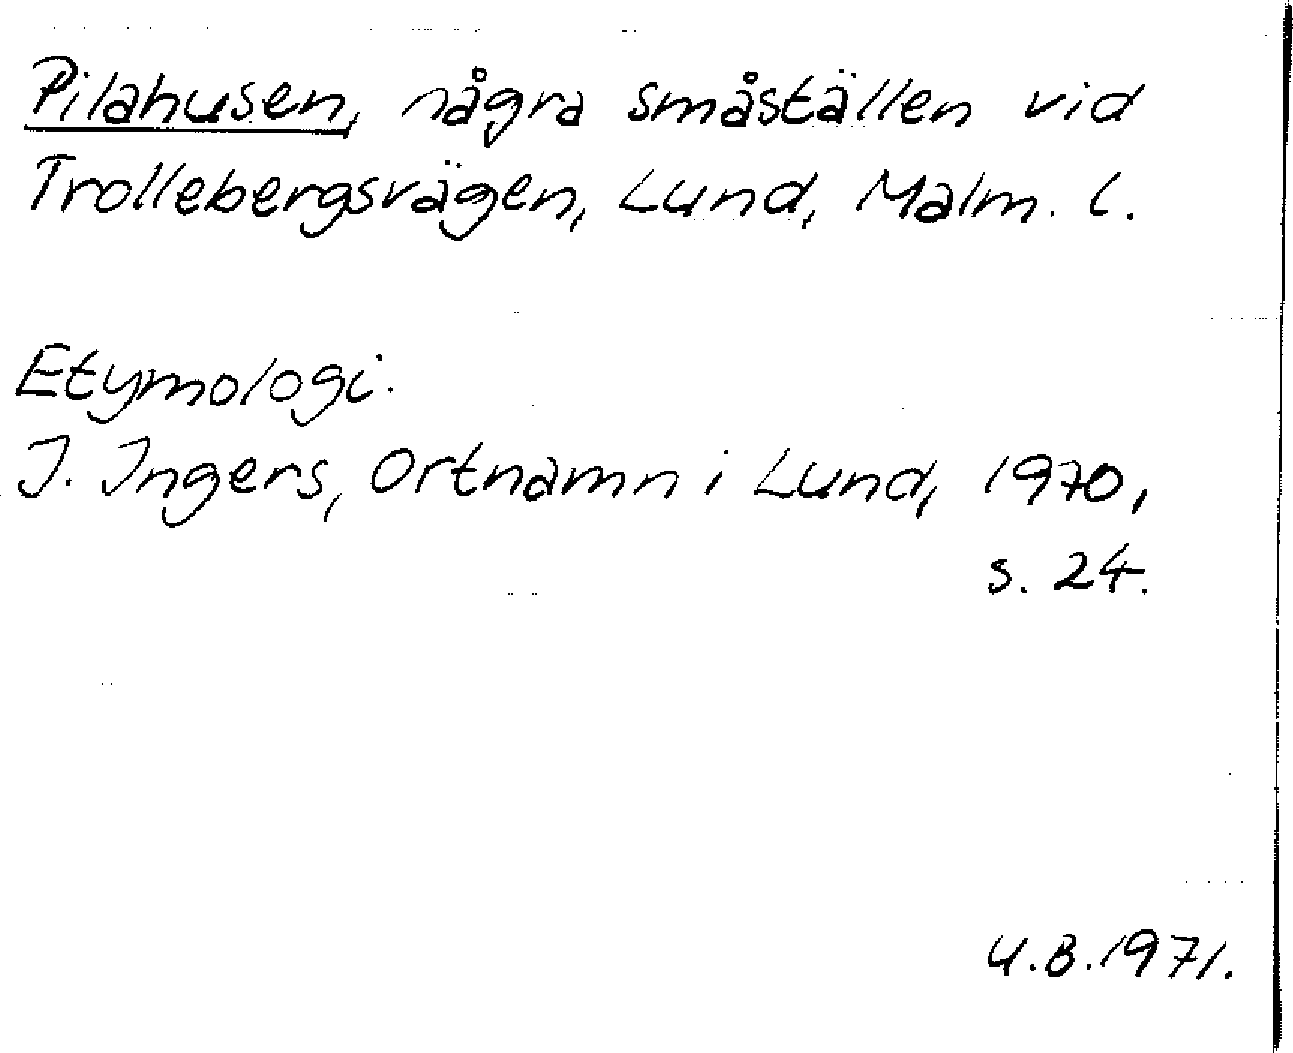 Pilahusen, några småställen vid
Trollebergsvägen, Lund, Malm. l.
Etymologi.
I. Ingers, Ortnamn i Lund, 1970,
s. 24.
U.B.1971.